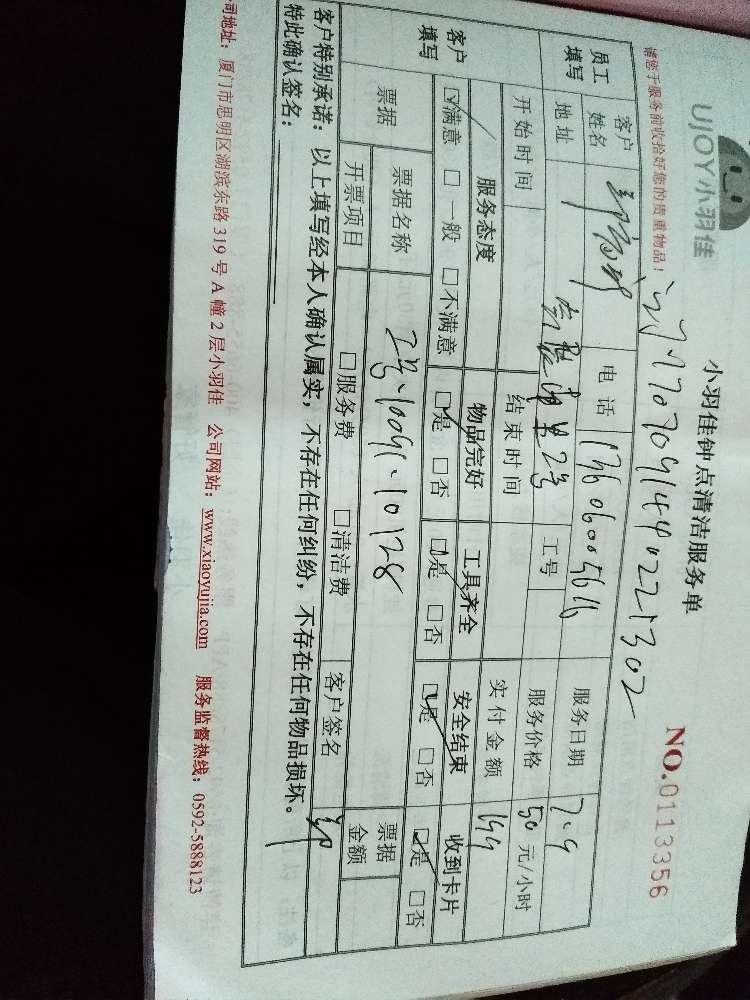 UJOY小羽佳
小羽佳钟点清洁服务单
NO.0113356
请您于服务前收拾好您的贵重物品！
1707091440221302
员工填写
客户姓名
电话 13606005616
服务日期 7.9
地址
2号
工号
服务价格 50 元/小时
开始时间
结束时间
实付金额 199
客户填写
服务态度 物品完好 工具齐全 安全结束 收到卡片
☑满意 □一般 □不满意 ☑是 □否 ☑是 □否 ☑是 □否 ☑是 □否
票据
票据名称
票据金额
开票项目 □服务费 □清洁费 客户签名
客户特别承诺：以上填写经本人确认属实，不存在任何纠纷，不存在任何物品损坏。
特此确认签名：
司地址：厦门市思明区湖滨东路 319 号 A 幢 2 层小羽佳 公司网站：www.xiaoyujia.com 服务监督热线：0592-5888123